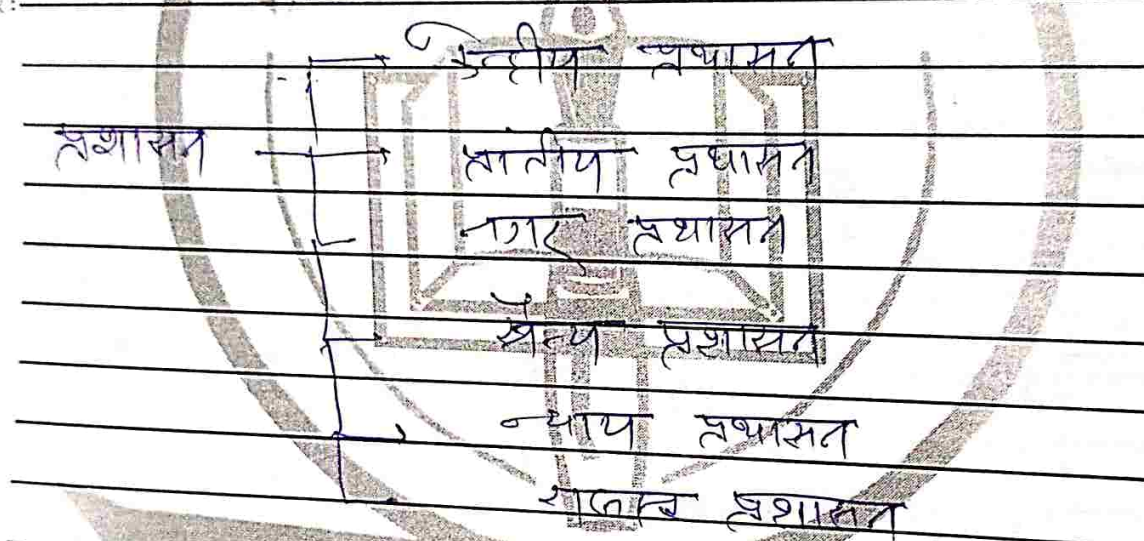 केन्द्रीय प्रशासन
प्रशासन
प्रांतीय प्रशासन
नगर प्रशासन
सैन्य प्रशासन
न्याय प्रशासन
राजस्व प्रशासन